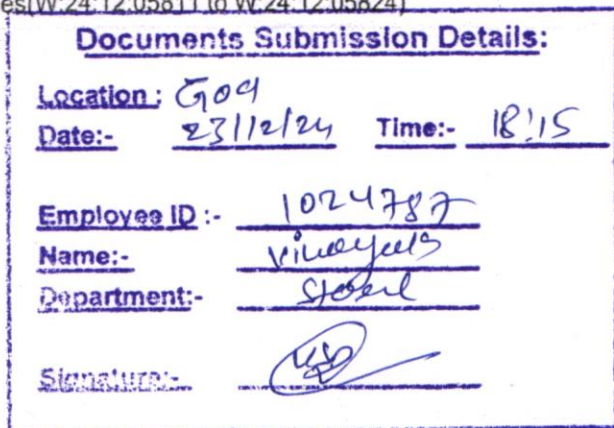 es(W:24:12:05811 to W:24:12:05824)
Documents Submission Details:
Location : Goa
Date:- 23/12/24 Time:- 18:15
Employee ID :- 1024787
Name:- Vinayak
Department:-
Signature:-